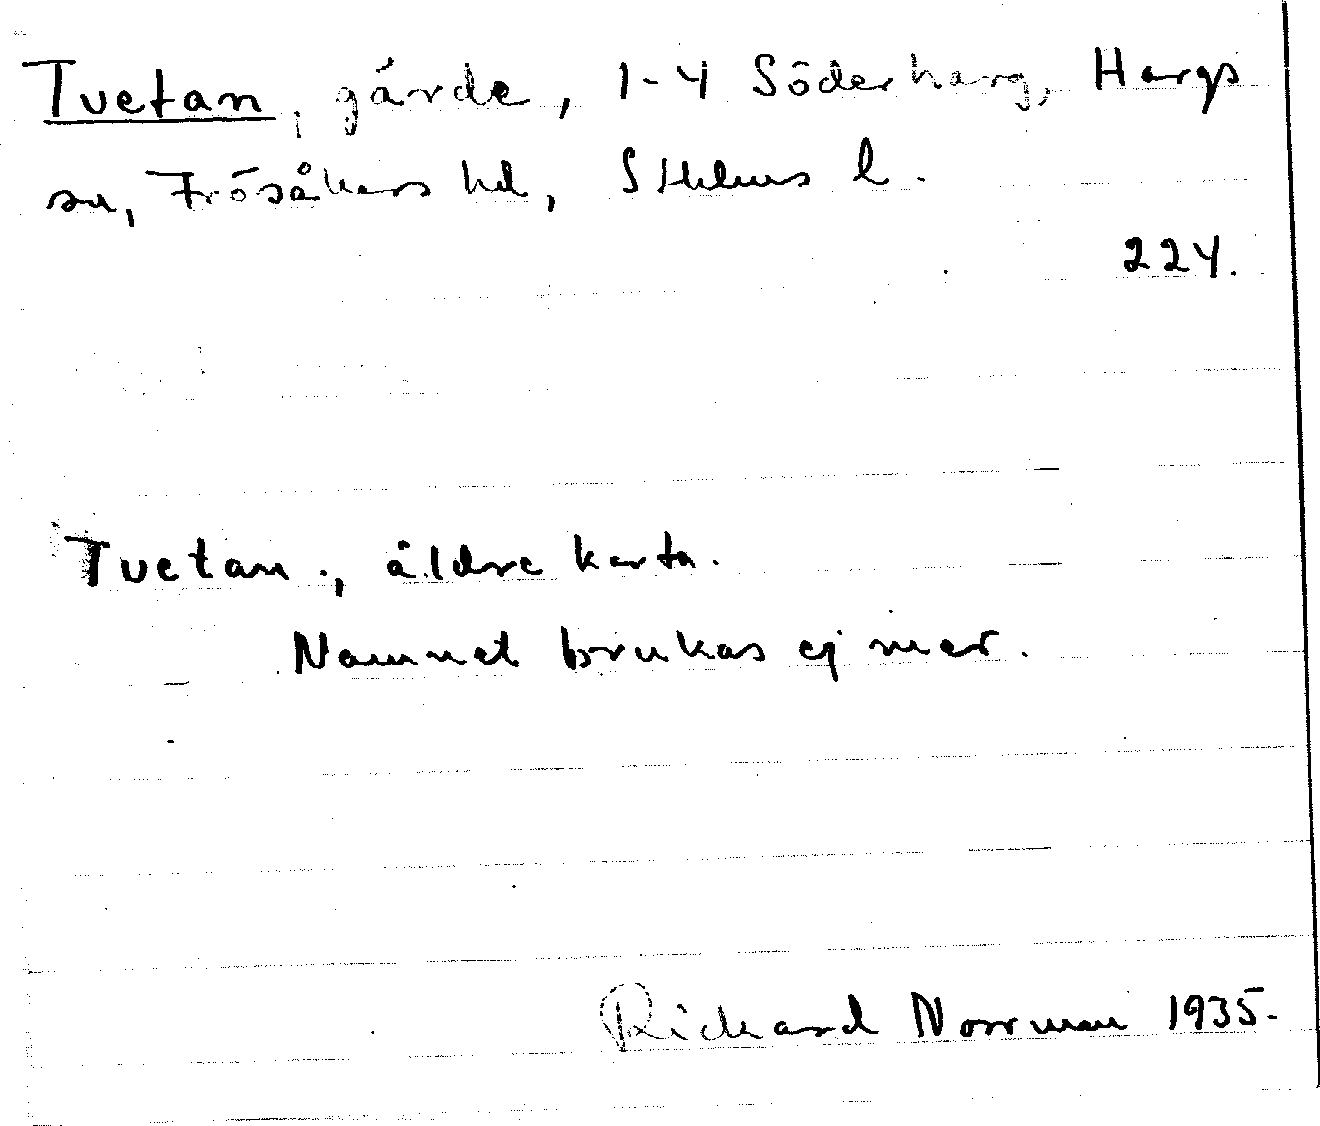 Tvetan, gärde, 1-4 Söderharg, Hargs
sn, Frösåkers hd, Sthlms l.
224.
Tvetan., äldre karta.
Namnet brukas ej mer.
Rickard Norrman 1935.